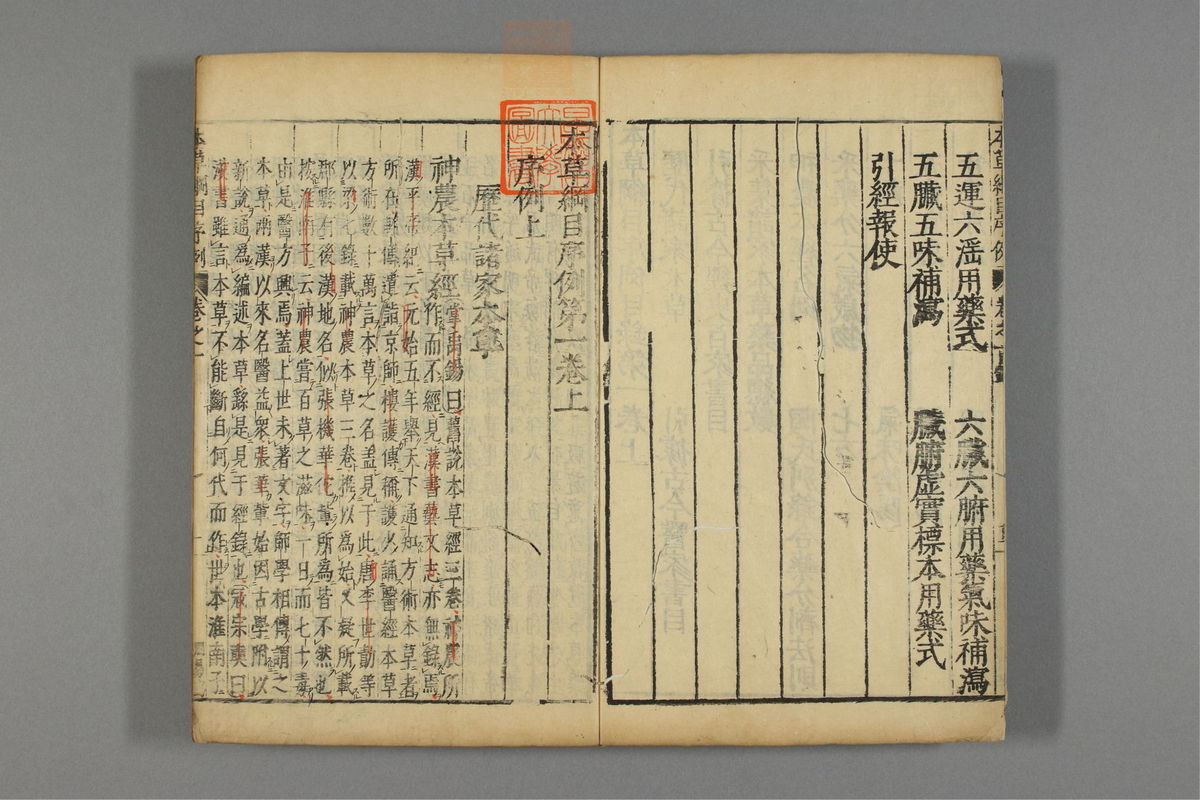 五運六滛用藥式　六臟六腑用藥氣味補瀉
五臟五味補瀉　臟腑虛實標本用藥式
引經報使
本草綱目序例第一卷上
序例上
歷代諸家本草
神農本草經掌禹錫曰舊說本草經三卷神農所
作而不經見漢書藝文志亦無錄焉
漢平帝紀云元始五年舉天下通知方術本草者
所在軺傳遣詣京師樓護傳稱護少誦醫經本草
方術數十萬言本草之名蓋見于此唐李世勣等
以梁七錄載神農本草三卷推以為始又疑所載
郡縣有後漢地名似張機華佗輩所為皆不然也
按淮南子云神農嘗百草之滋味一日而七十毒
由是醫方興焉蓋上世未著文字師學相傳謂之
本草兩漢以來名醫益衆張華輩始因古學附以
新說通為編述本草繇是見于經錄也宼宗奭曰
漢書雖言本草不能斷自何代而作世本淮南子
本草綱目序例　卷之一